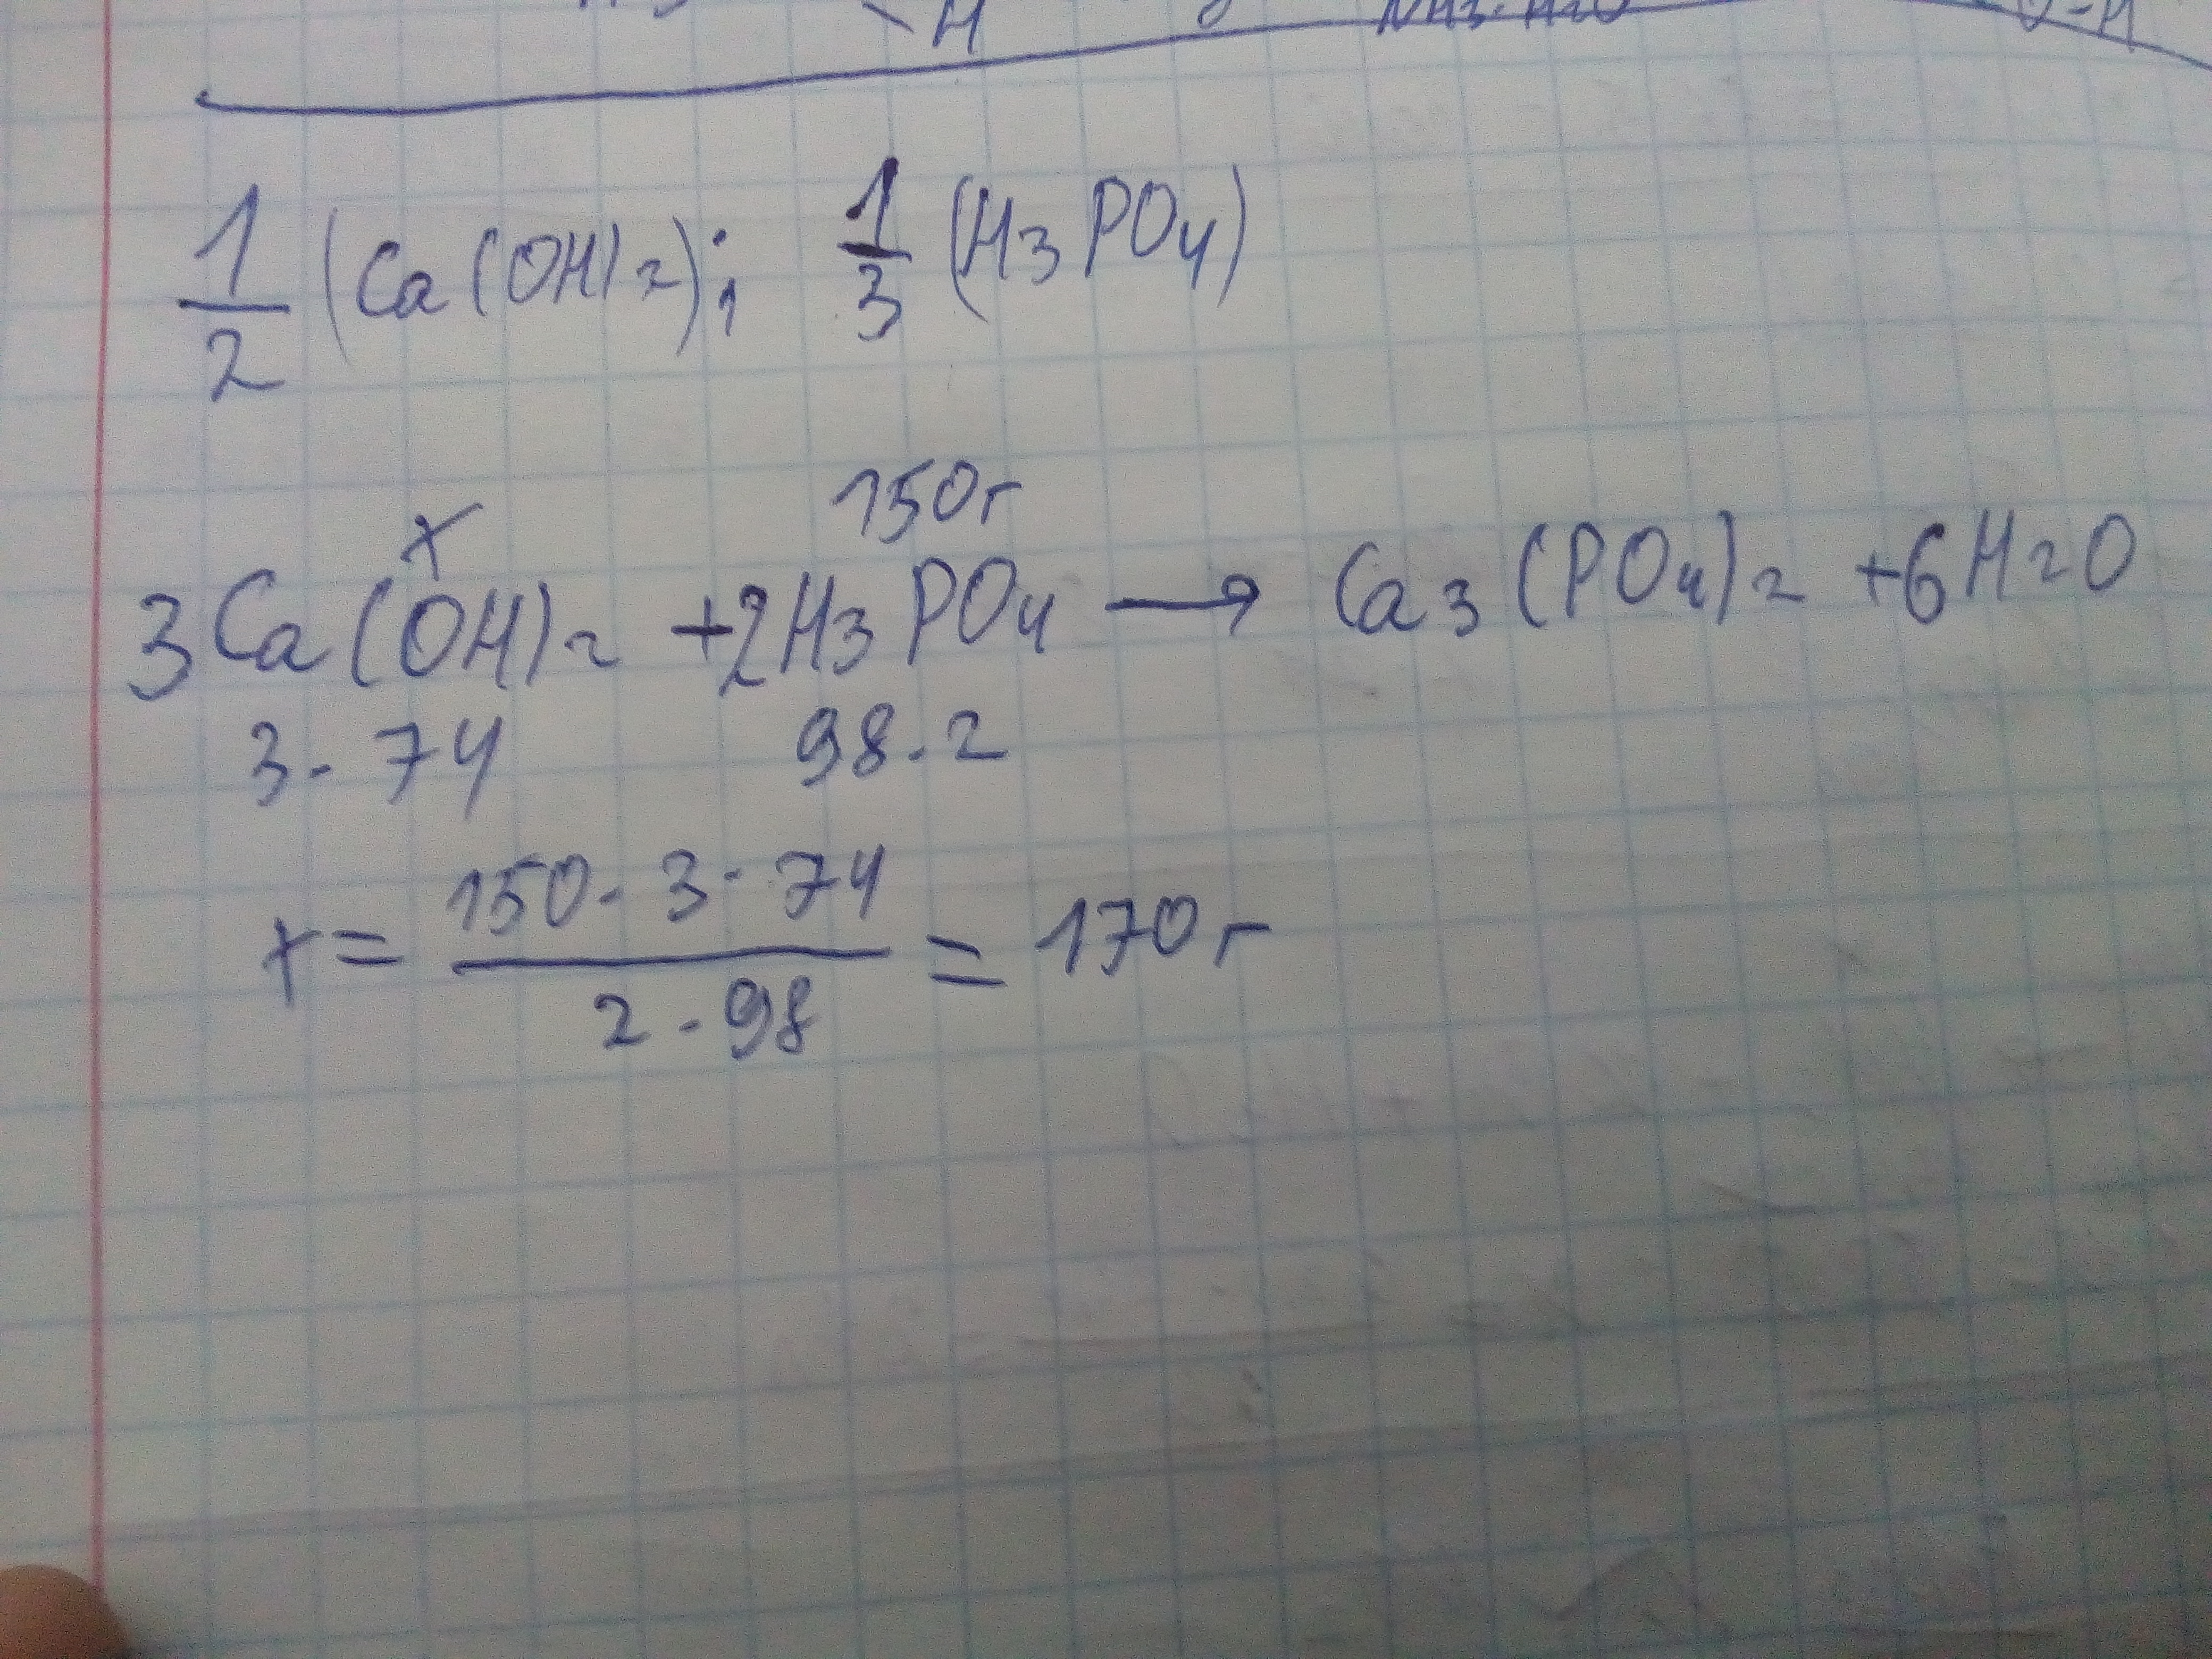 H
NH3·H2O
O-H
1/2 (Ca(OH)2); 1/3 (H3PO4)
x 150г
3Ca(OH)2 +2H3PO4 → Ca3(PO4)2 +6H2O
3·74 98·2
x = 150·3·74 / 2·98 = 170г